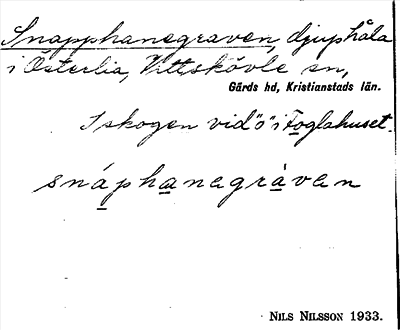 Snapphanegraven, djuphåla
i Österlia, Vittskövle sn,
Gärds hd, Kristianstads län.
I skogen vid "o" i Foglahuset.
snáphanegràven
NILS NILSSON 1933.